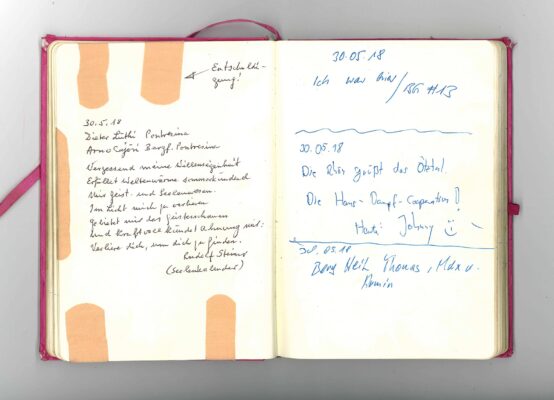 Entschuldi-
gung!
30.5.18
Dieter Lüthi Pontresina
Arno Bergf. Pontresina
Vergessend meine Willenseigenheit
Erfüllet Weltenwärme sommerkündend
Mir Geist und Seelenwesen.
Im Licht mich zu verlieren
gebietet mir das Geistesschauen
und kraftvoll kündet Ahnung mir:
Verliere dich, um dich zu finden.
Rudolf Steiner
(Seelenkalender)
30.05.18
Ich war hier / BG #13
30.05.18
Die Rhön grüßt das Ötztal.
Die Hans-Dampf-Cooperation!
Johnny
30.05.18
Berg Heil Thomas, Max u.
Armin